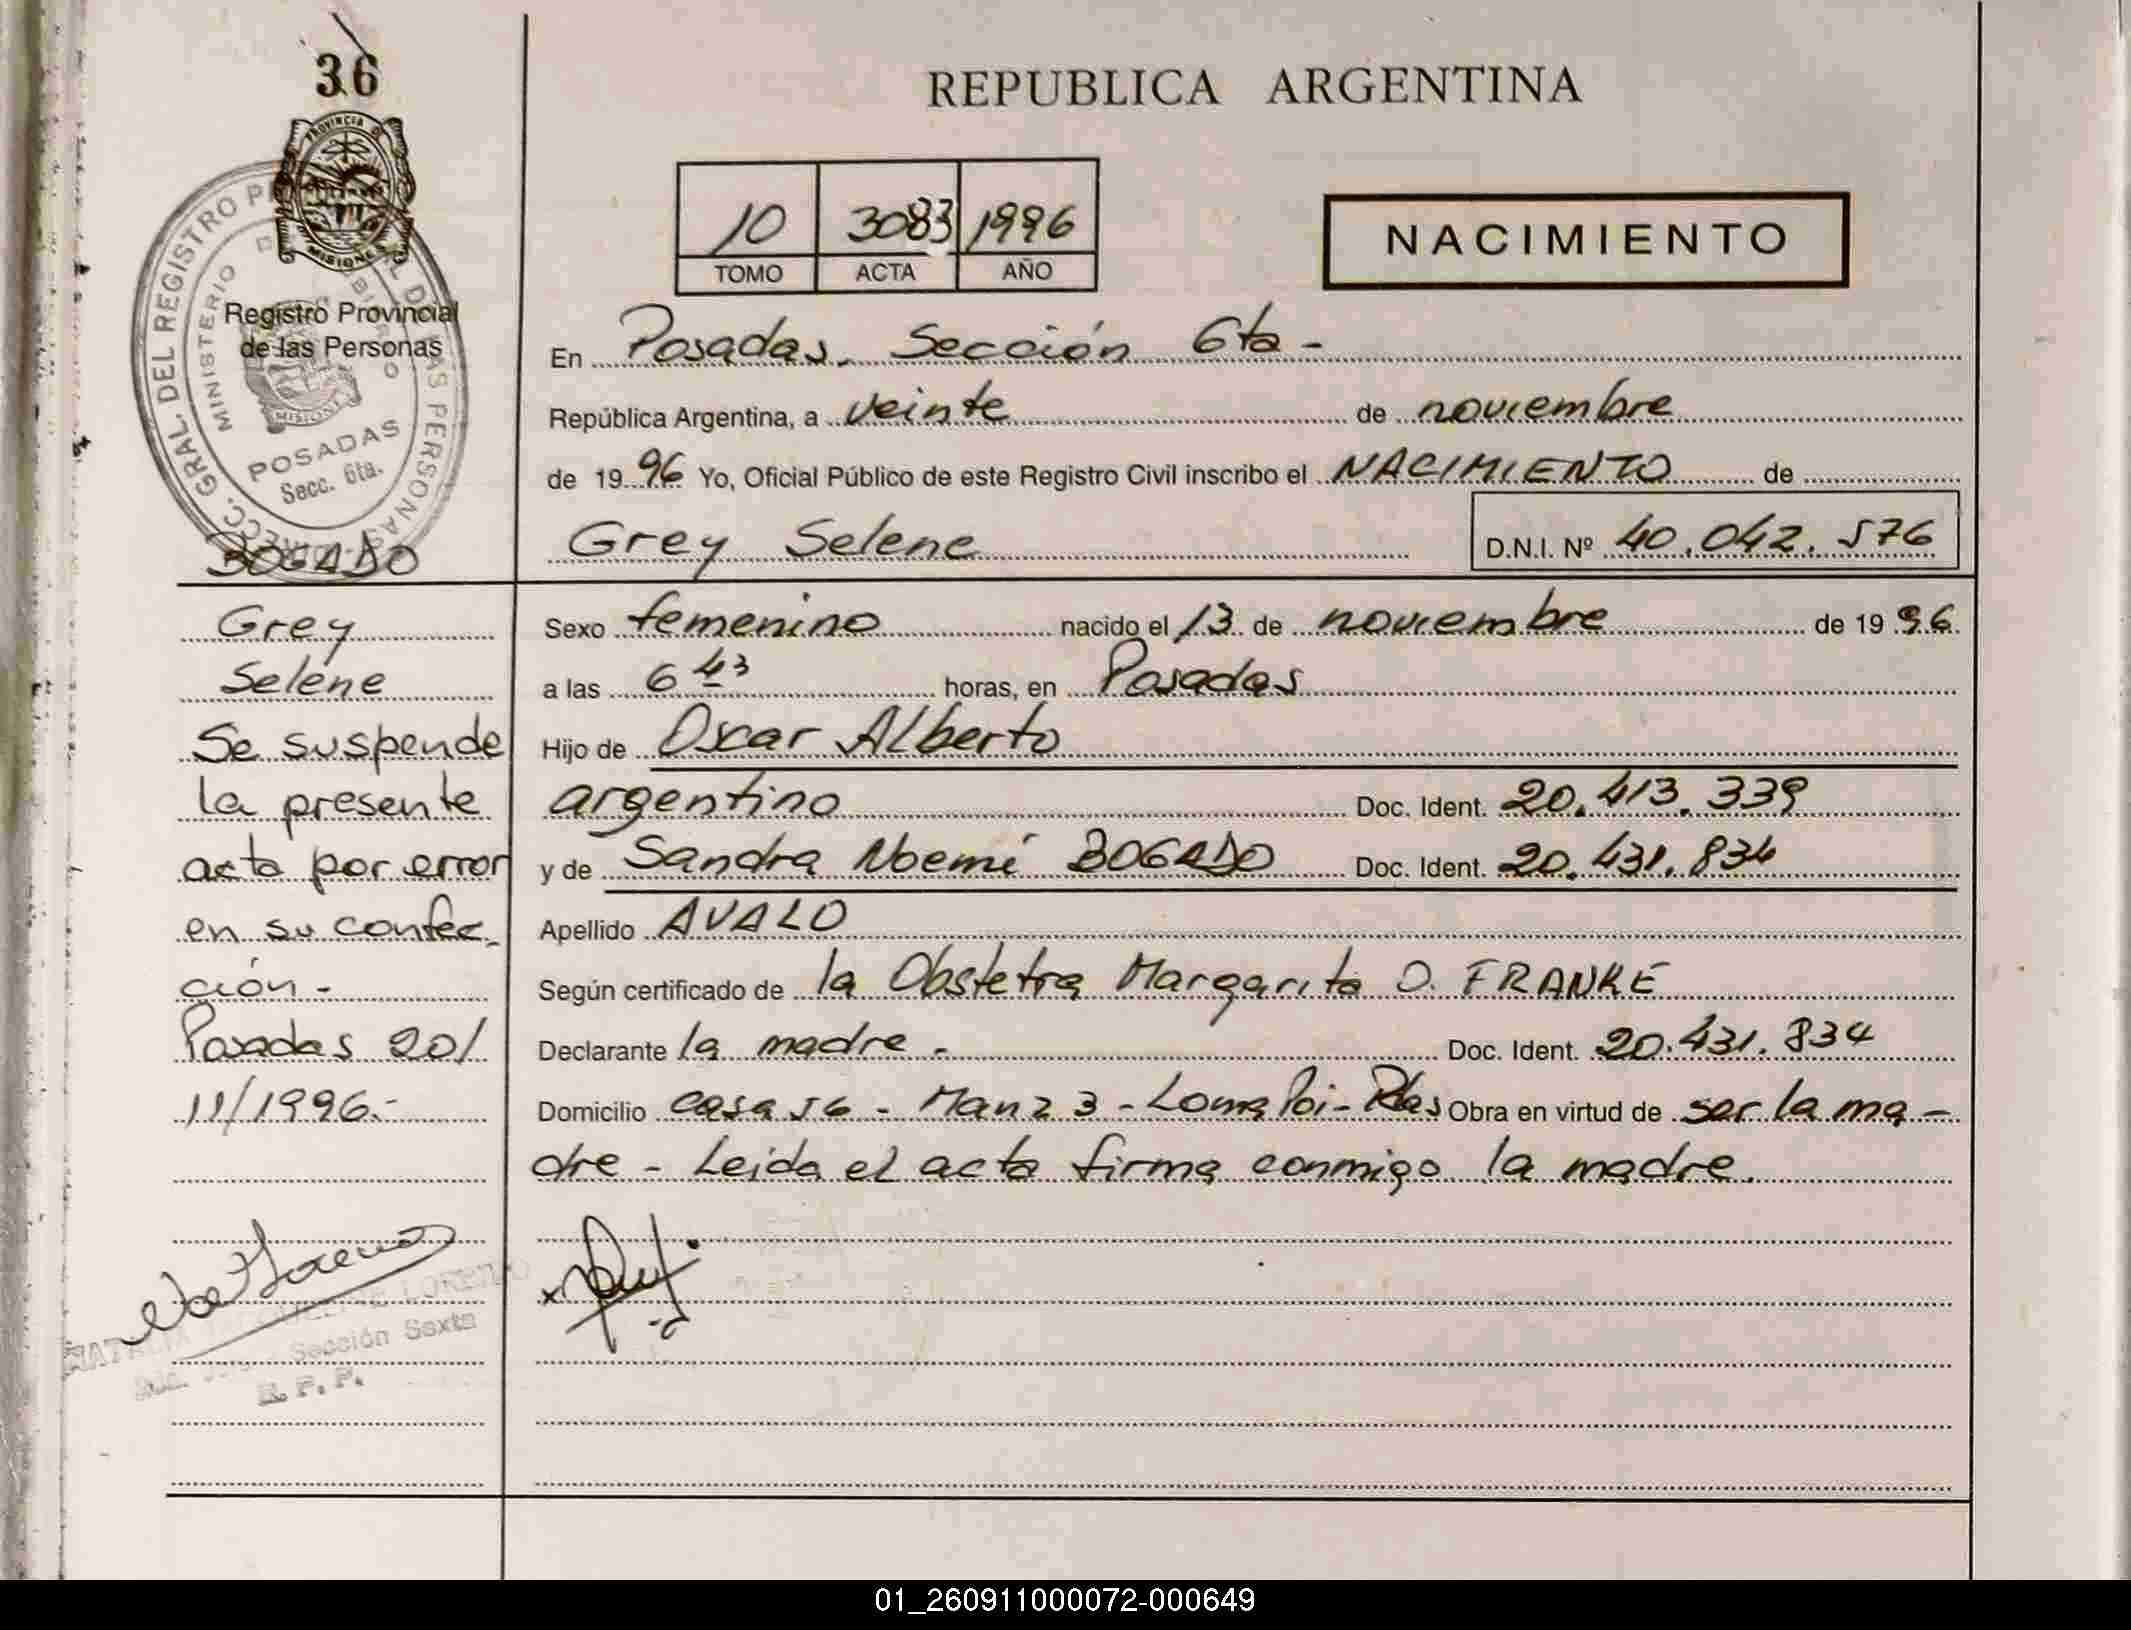 36
PROVINCIA D
MISIONES
DIRECC. GRAL. DEL REGISTRO PERSONAS
MINISTERIO
Registro Provincial
de las Personas
MISIONES
POSADAS
Secc. 6ta.
BOGADO
Grey
Selene
Se suspende
la presente
acta por error
en su confec-
ción -
Posadas 20/
11/1996.-
Sección Sexta
R. P. P.
REPUBLICA ARGENTINA
10 3083 1996
TOMO ACTA AÑO
NACIMIENTO
En Posadas. Sección 6ta -
República Argentina, a veinte de noviembre
de 19 96 Yo, Oficial Público de este Registro Civil inscribo el NACIMIENTO de
Grey Selene D.N.I. Nº 40.042.576
Sexo femenino nacido el 13 de noviembre de 19 96
a las 6 43 horas, en Posadas
Hijo de Oscar Alberto
argentino Doc. Ident. 20.413.339
y de Sandra Noemí BOGADO Doc. Ident. 20.431.834
Apellido AVALO
Según certificado de la Obstetra Margarita O. FRANKE
Declarante la madre - Doc. Ident. 20.431.834
Domicilio casa 56 - Manz 3 - Loma Poi - Pdas Obra en virtud de ser la ma-
dre - Leida el acta firma conmigo la madre.
01_260911000072-000649